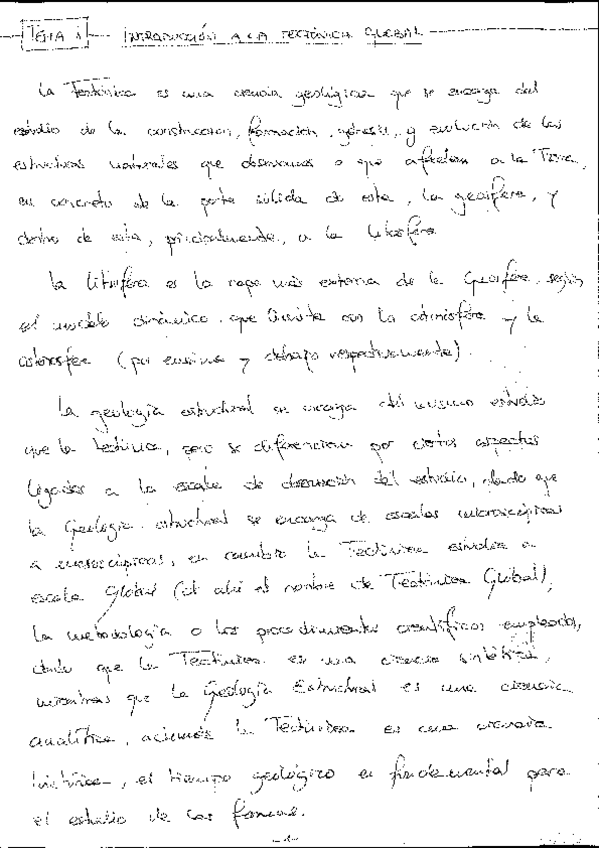 TEMA 1 INTRODUCCIÓN A LA TECTÓNICA GLOBAL
La Tectónica es una ciencia geológica que se encarga del
estudio de la construcción, formación, génesis, y evolución de las
estructuras naturales que observamos o que afectan a la Tierra,
en concreto de la parte sólida de esta, la geosfera, y
dentro de esta, principalmente, a la Litosfera.
La litosfera es la capa más externa de la Geosfera, según
el modelo dinámico, que limita con la atmósfera y la
astenosfera (por encima y debajo respectivamente).
La geología estructural se encarga del mismo estudio
que la tectónica, pero se diferencian por ciertos aspectos
ligados a la escala de observación del estudio, dado que
la Geología estructural se encarga de escalas microscópicas
a mesoscópicas, en cambio la Tectónica estudia a
escala Global (de ahí el nombre de Tectónica Global),
la metodología o los procedimientos científicos empleados,
dado que la Tectónica es una ciencia sintética,
mientras que la Geología Estructural es una ciencia
analítica, además la Tectónica es una ciencia
histórica, el tiempo geológico es fundamental para
el estudio de las
-1-